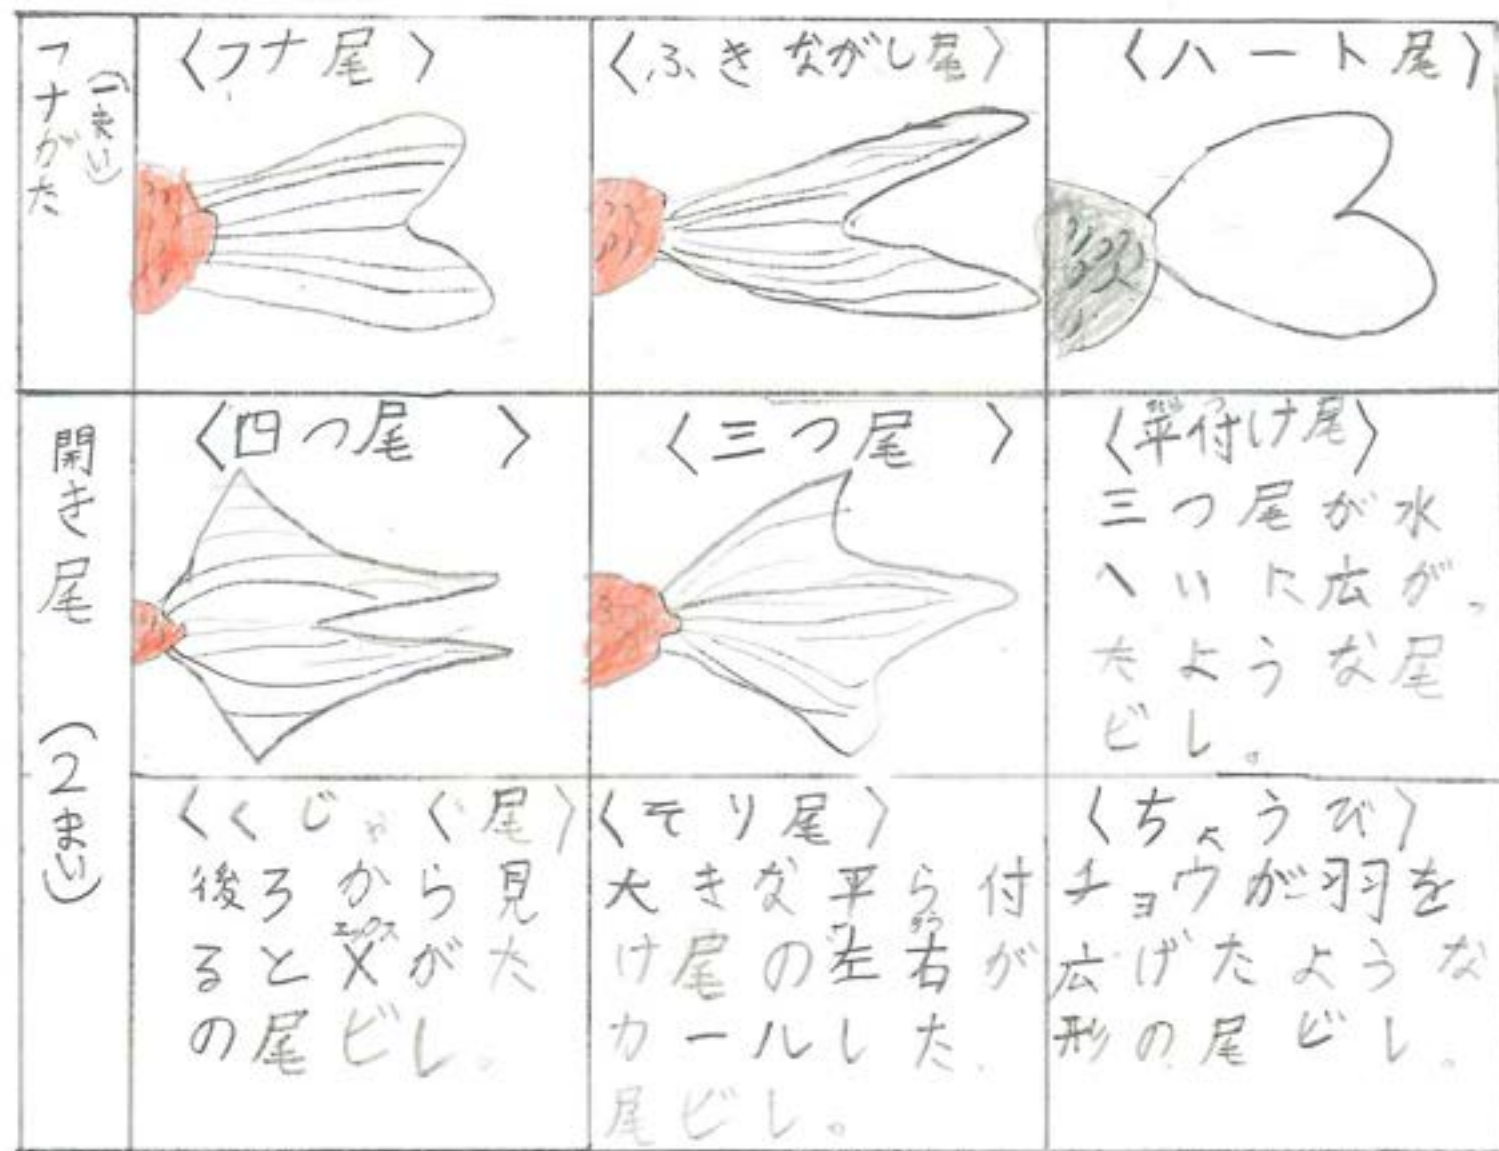 フナがた
(一まい)
〈フナ尾〉
〈ふきながし尾〉
〈ハート尾〉
開き尾 (2まい)
〈四つ尾〉
〈三つ尾〉
〈平付け尾〉
三つ尾が水
へいに広がっ
たような尾
ビレ。
〈くじゃく尾〉
後ろから見
エックス
るとXがた
の尾ビレ。
〈そり尾〉
大きな平ら付
け尾の左右が
カールした
尾ビレ。
〈ちょうび〉
チョウが羽を
広げたような
形の尾ビレ。